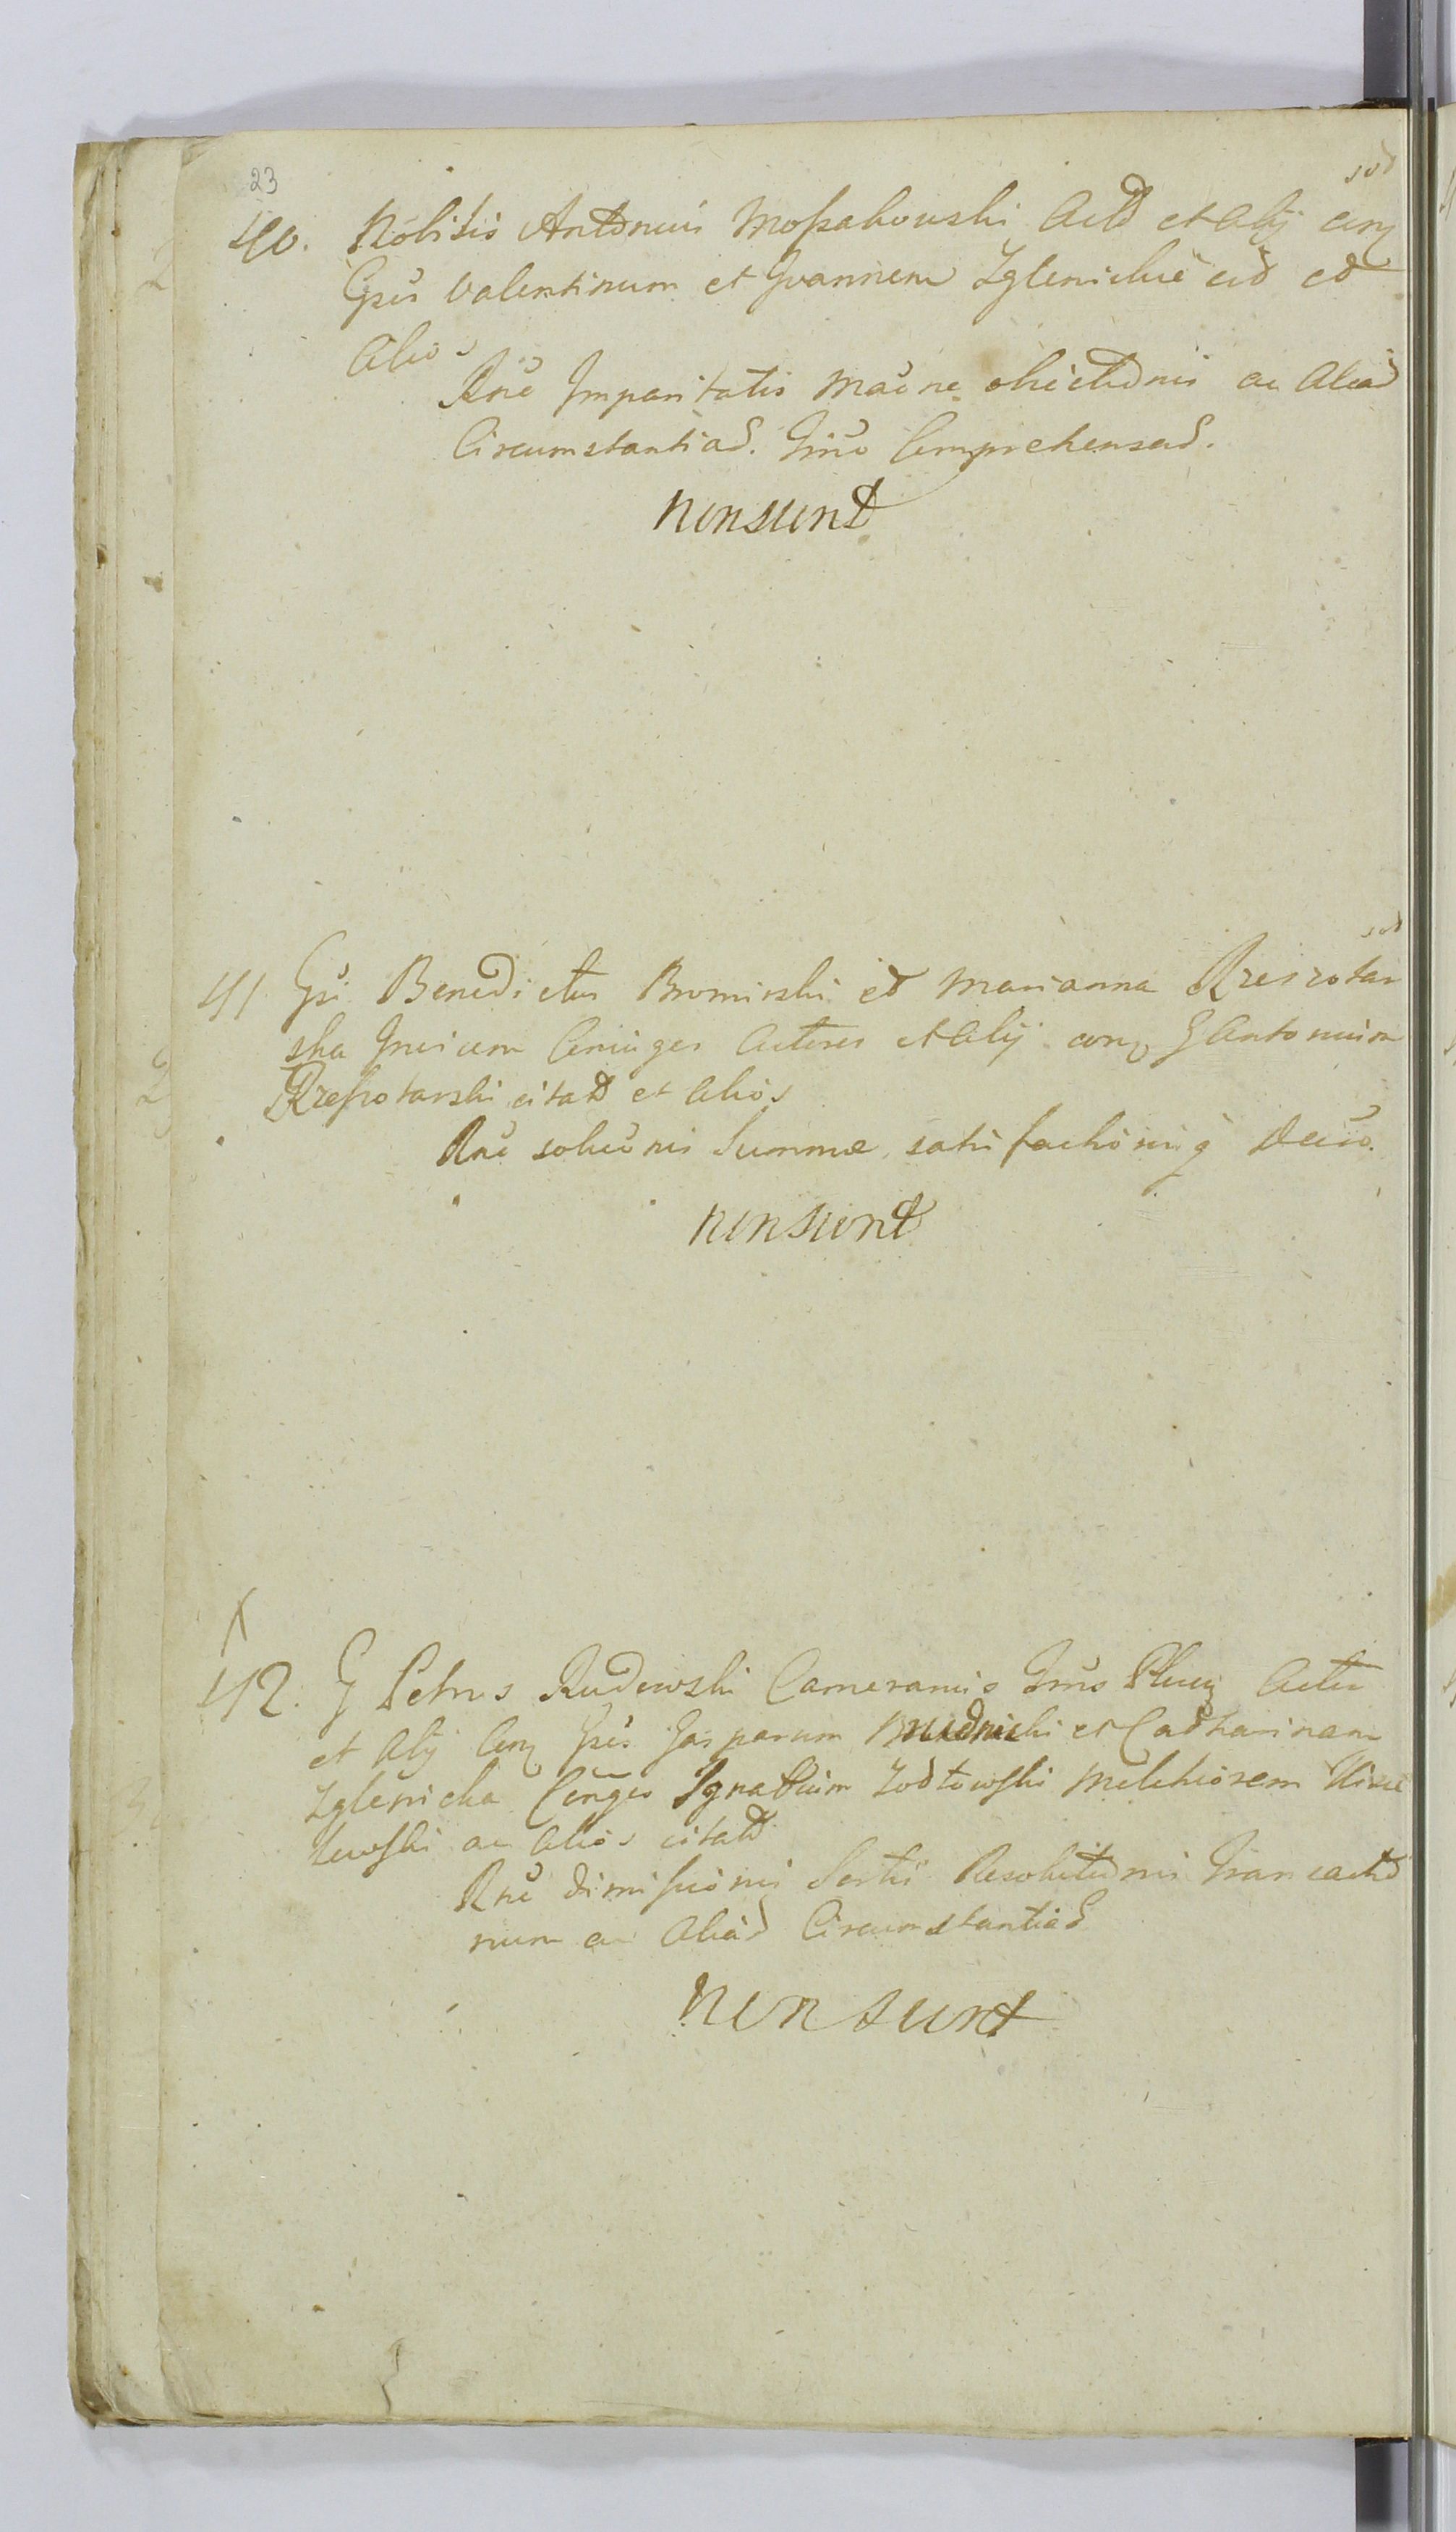 23
sod
40. Nobilis Antonius Mossakowski Actor et Alij con
Gsos Valentinum et Joannem Zglenickie cit et
Alios
Rne Imparitatis Maene ac Aliad
Circumstantiad. Trno Comprehensad.
non sunt
sod
41 Gsi Benedictus Bromirski et Marianna Krzeszotar
ska Invicem Coniuges Actores et Alij con G Antonium
Krzeszotarski citat et Alios
Rne solucionis Summae satisfactionisq Decre.
non sunt
X
42. G Petrus Rudowski Camerarius Trris Plocq Actor
et Alij Con Gsos Gasparum et Catharinam
Zglenicka Coniuges Ignatium Zodtowski Melchiorem
lewski ac Alios citat
Rne dimissionis Sortis Resolutionis Transactio
num ac Aliad Circumstantiad
non sunt